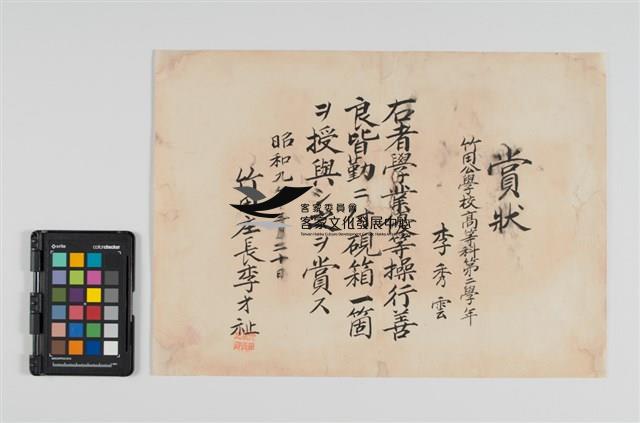 賞狀
竹田公學校高等科第二學年
李秀雲
右者學業優等操行善
良皆勤ニ付硯箱一箇
ヲ授與シ之ヲ賞ス
昭和九年三月二十日
竹田庄長李才祉
客家委員會
客家文化發展中心
Taiwan Hakka Culture Development Center, Hakka Affairs Council
x-rite
colorchecker